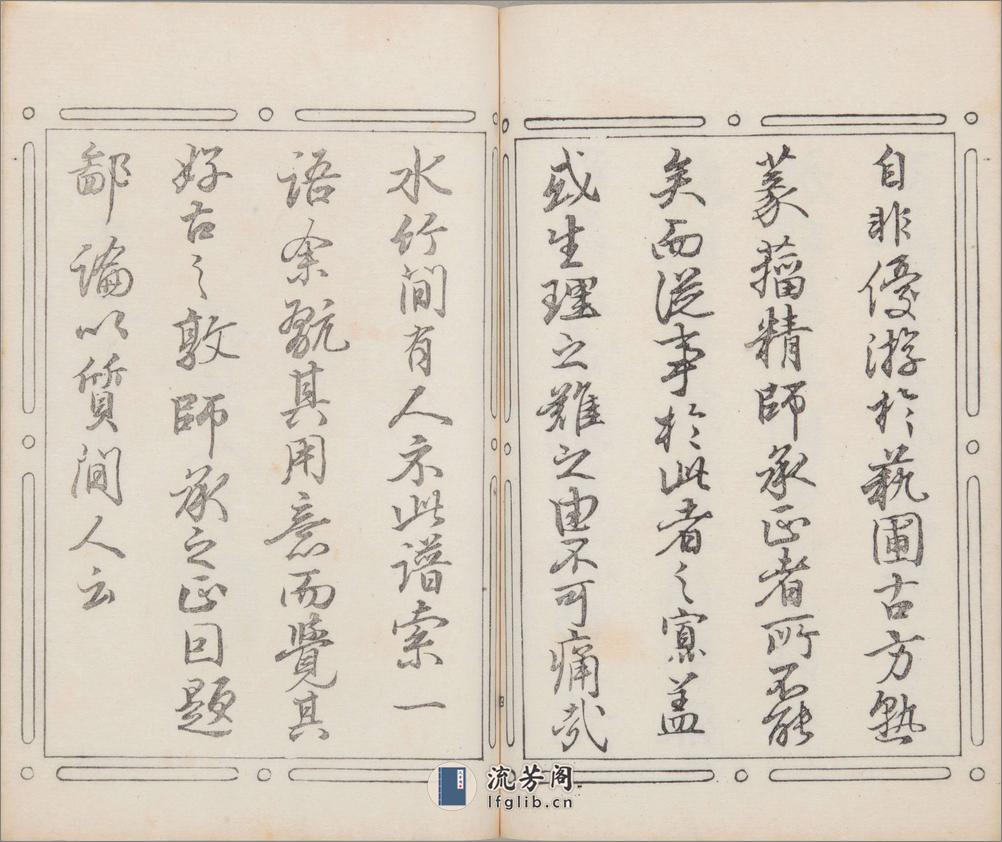 自非優游於藝圃古方熟
篆籀精師承正者所不能
矣而従事於此者之寡蓋
或生理之難之由不可痛哉
水竹間有人示此譜索一
語余翫其用意而覺其
好古之敦師承之正因題
鄙論以質間人云
流芳阁
lfglib.cn